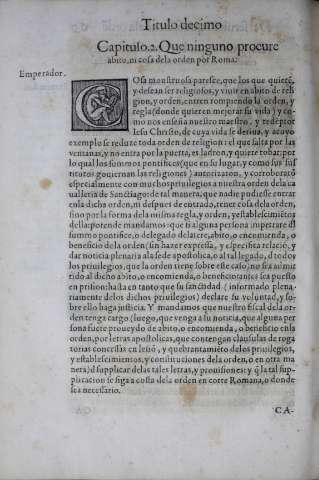 Titulo decimo
Capitulo.2. Que ninguno procure
abito, ni cosa dela orden por Roma.
Emperador.
COsa monstruosa paresce, que los que quierẽ,
y dessean ser religiosos, y viuir en abito de reli
gion, y orden, entren rompiendo la orden, y
regla (donde quieren mejorar su vida) y co
mo nos enseña nuestro maestro, y redẽptor
Iesu Christo, de cuya vida se deriua, y a cuyo
exemplo se reduze toda orden de religion: el que salta por las
ventanas, y no entra por la puerta, es ladron, y quiere robar: por
lo qual los summos pontifices (que en su lugar, y como sus sus
titutos gouiernan las religiones) autorizaron, y corroborarõ
especialmente con muchos priuilegios a nuestra orden dela ca
ualleria de Sanctiago: de tal manera, que nadie pudiesse entrar
enla dicha orden, ni despues de entrado, tener cosa dela orden,
sino por la forma dela misma regla, y orden, y establescimiẽtos
della: porende mandamos que si alguna persona impetrare dl
summo pontifice, o delegado delatere, abito, o encomienda, o
beneficio dela orden (sin hazer expressa, y especifica relaciõ, y
dar noticia plenaria ala sede apostolica, o al tal legado, d todos
los priuilegios, que la orden tiene sobre este caso, no sea admi
tido al dicho abito, o encomienda, o beneficio: antes sea puesto
en prision: hasta en tanto que su sanctidad (informado plena-
riamente delos dichos priuilegios) declare su voluntad, y so-
bre ello haga justicia. Y mandamos que nuestro fiscal dela or
den tenga cargo (luego, que venga a su noticia, que alguna per
sona fuere proueydo de abito, o encomienda, o beneficio enla
orden, por letras apostolicas, que contengan clausulas de rog
torias concessas en lesiõ, y quebrantamiẽto delos priuilegios,
y establescimiẽtos, y constituciones dela orden, o en otra ma
nera) d supplicar delas tales letras, y prouisiones: y q̃ la tal sup-
plicacion se siga a costa dela orden en corte Romana, o donde
sea necessario.
CA-